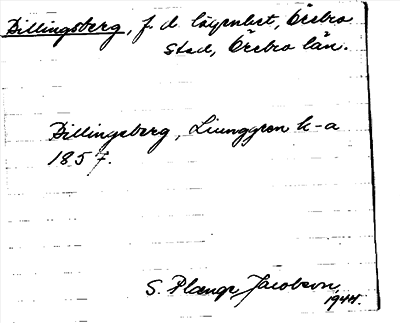 Billingsberg, f. d. lägenhet, Örebro
stad, Örebro län.
Billingsberg, Ljunggren k-a
1857.
S. Plange Jacobson
1944.